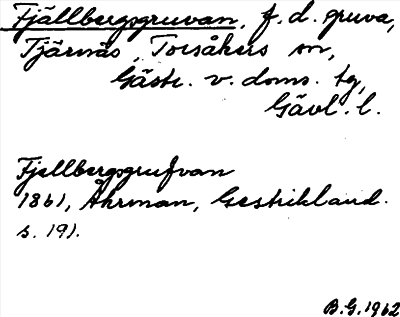 Fjällbergsgruvan, f. d. gruva,
Tjärnäs, Torsåkers sn,
Gästr. v. doms. tg,
Gävl. l.
Fjellbergsgrufvan
1861, Åhrman, Gestrikland.
s. 191.
B.G. 1962